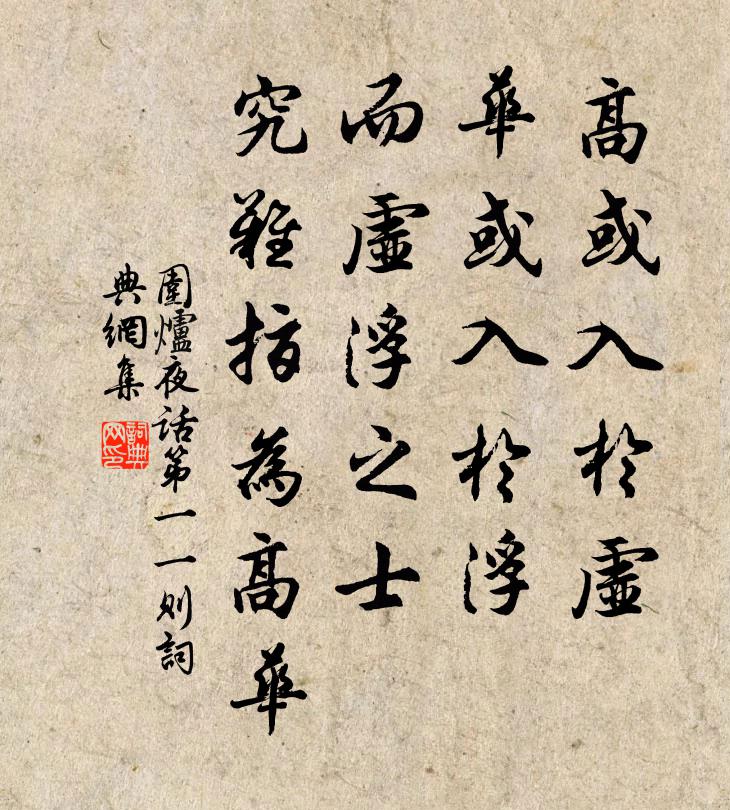 高或入於虛
華或入於浮
而虛浮之士
究難指為高華
圍爐夜话第一一則詞
典網集
詞典
网印